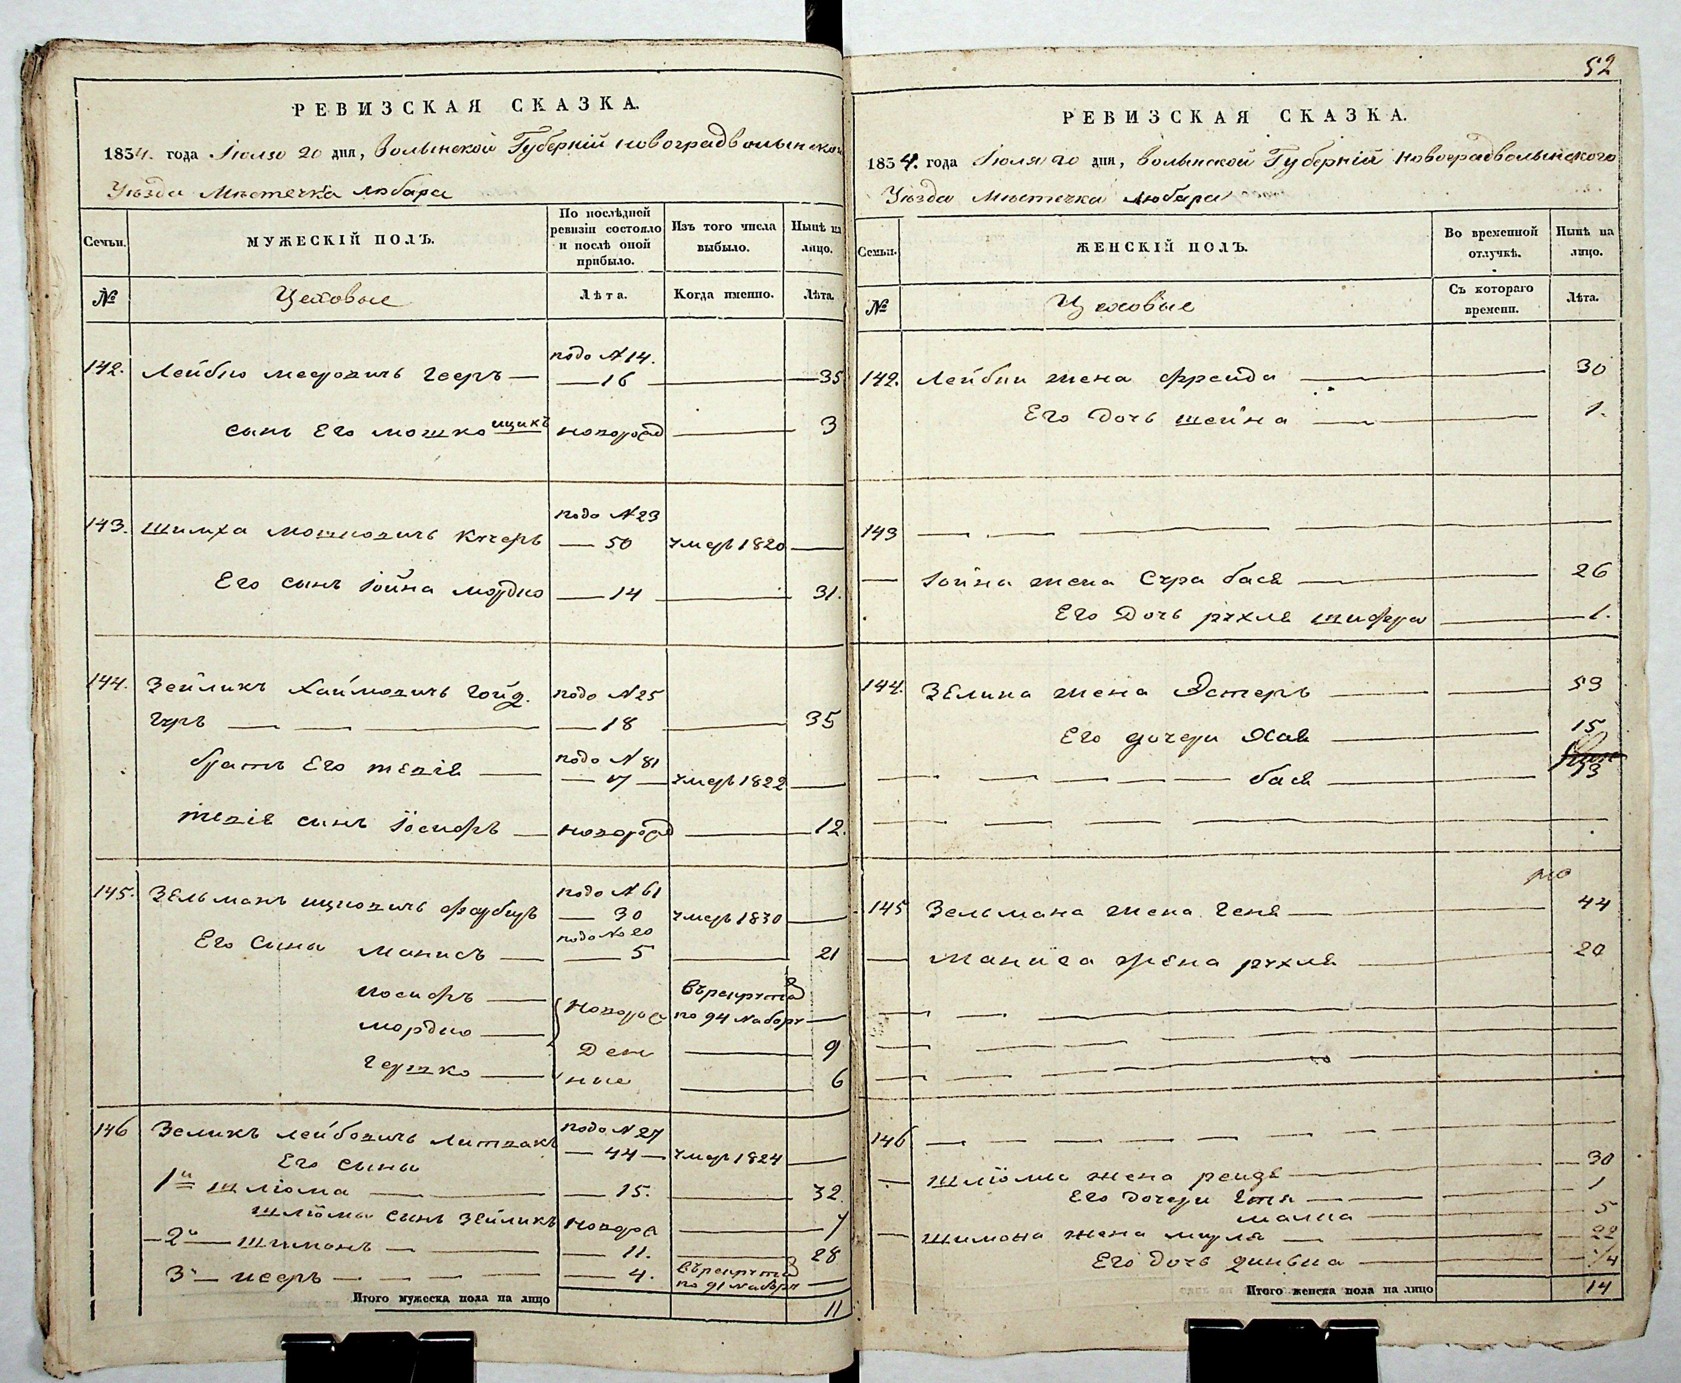 РЕВИЗСКАЯ СКАЗКА.
1854. года Июля 20 дня, Волынской Губерній Новоградволынского
Уѣзда Мѣстечка Любара
Семьи.
МУЖЕСКІЙ ПОЛЪ.
По послѣдней ревизіи состояло и послѣ оной прибыло.
Изъ того числа выбыло.
Нынѣ на лицо.
№
Цеховые
Лѣта.
Когда именно.
Лѣта.
подо №14.
142. Лейбко Мееровичъ Гееръ — 16 — 35
сынъ Его Мошко Ицикъ новород — 3
подо №23
143. Шимха Мошковичъ Кучеръ — 50 умеръ 1820 —
Его сынъ Іойна Мордко — 14 — 31.
144. Зейликъ Хаймовичъ подо №25
— 18 — 35
подо №81
братъ Его Тевія — 17 — умеръ 1822 —
Тевія сынъ Іосифъ — новород — 12.
подо №61
145. Зельманъ Ицковичъ Фарбиръ — 30 умеръ 1830 —
подо №20
Его Сыны Манисъ — 5 — 21
Иосифъ — Новорож въ рекрута
Мордко — по 94 набору —
Ден — 9
Гершко — ные — 6
146 Зеликъ Лейбовичъ Литвакъ подо №27
— 44 — умеръ 1824 —
Его сыны
1й Шліома — 15. — 32
Шліомы сынъ Зейликъ Новоро — 7
2й — Шимонъ — 11. — 28
3й — — 4. въ рекрута по 91 набору —
Итого мужеска пола на лицо 11
52
РЕВИЗСКАЯ СКАЗКА.
1854. года Іюля 20 дня, Волынской Губерній Новоградволынского
Уѣзда Мѣстечка Любара
Семьи.
ЖЕНСКІЙ ПОЛЪ.
Во временной отлучкѣ.
Нынѣ на лицо.
№
Цеховые
Съ котораго времени.
Лѣта.
142. Лейбки жена Фрейда — 30
Его дочь Шейна — 1.
143 —
— Іойна жена Сура бася — 26
Его Дочь рухля шифра — 1.
144. Зелика жена Эстеръ — 53
Его дочери Хая — 15
— бася — 13
145 Зельмана жена Геня — 44
— Маниса жена рухля — 20
146 —
— Шліомы жена рейзя — 30
Его дочери Етя — 1
малка — 5
— Шимона жена мирля — 22
Его дочь — 1/4
Итого женска пола на лицо 14